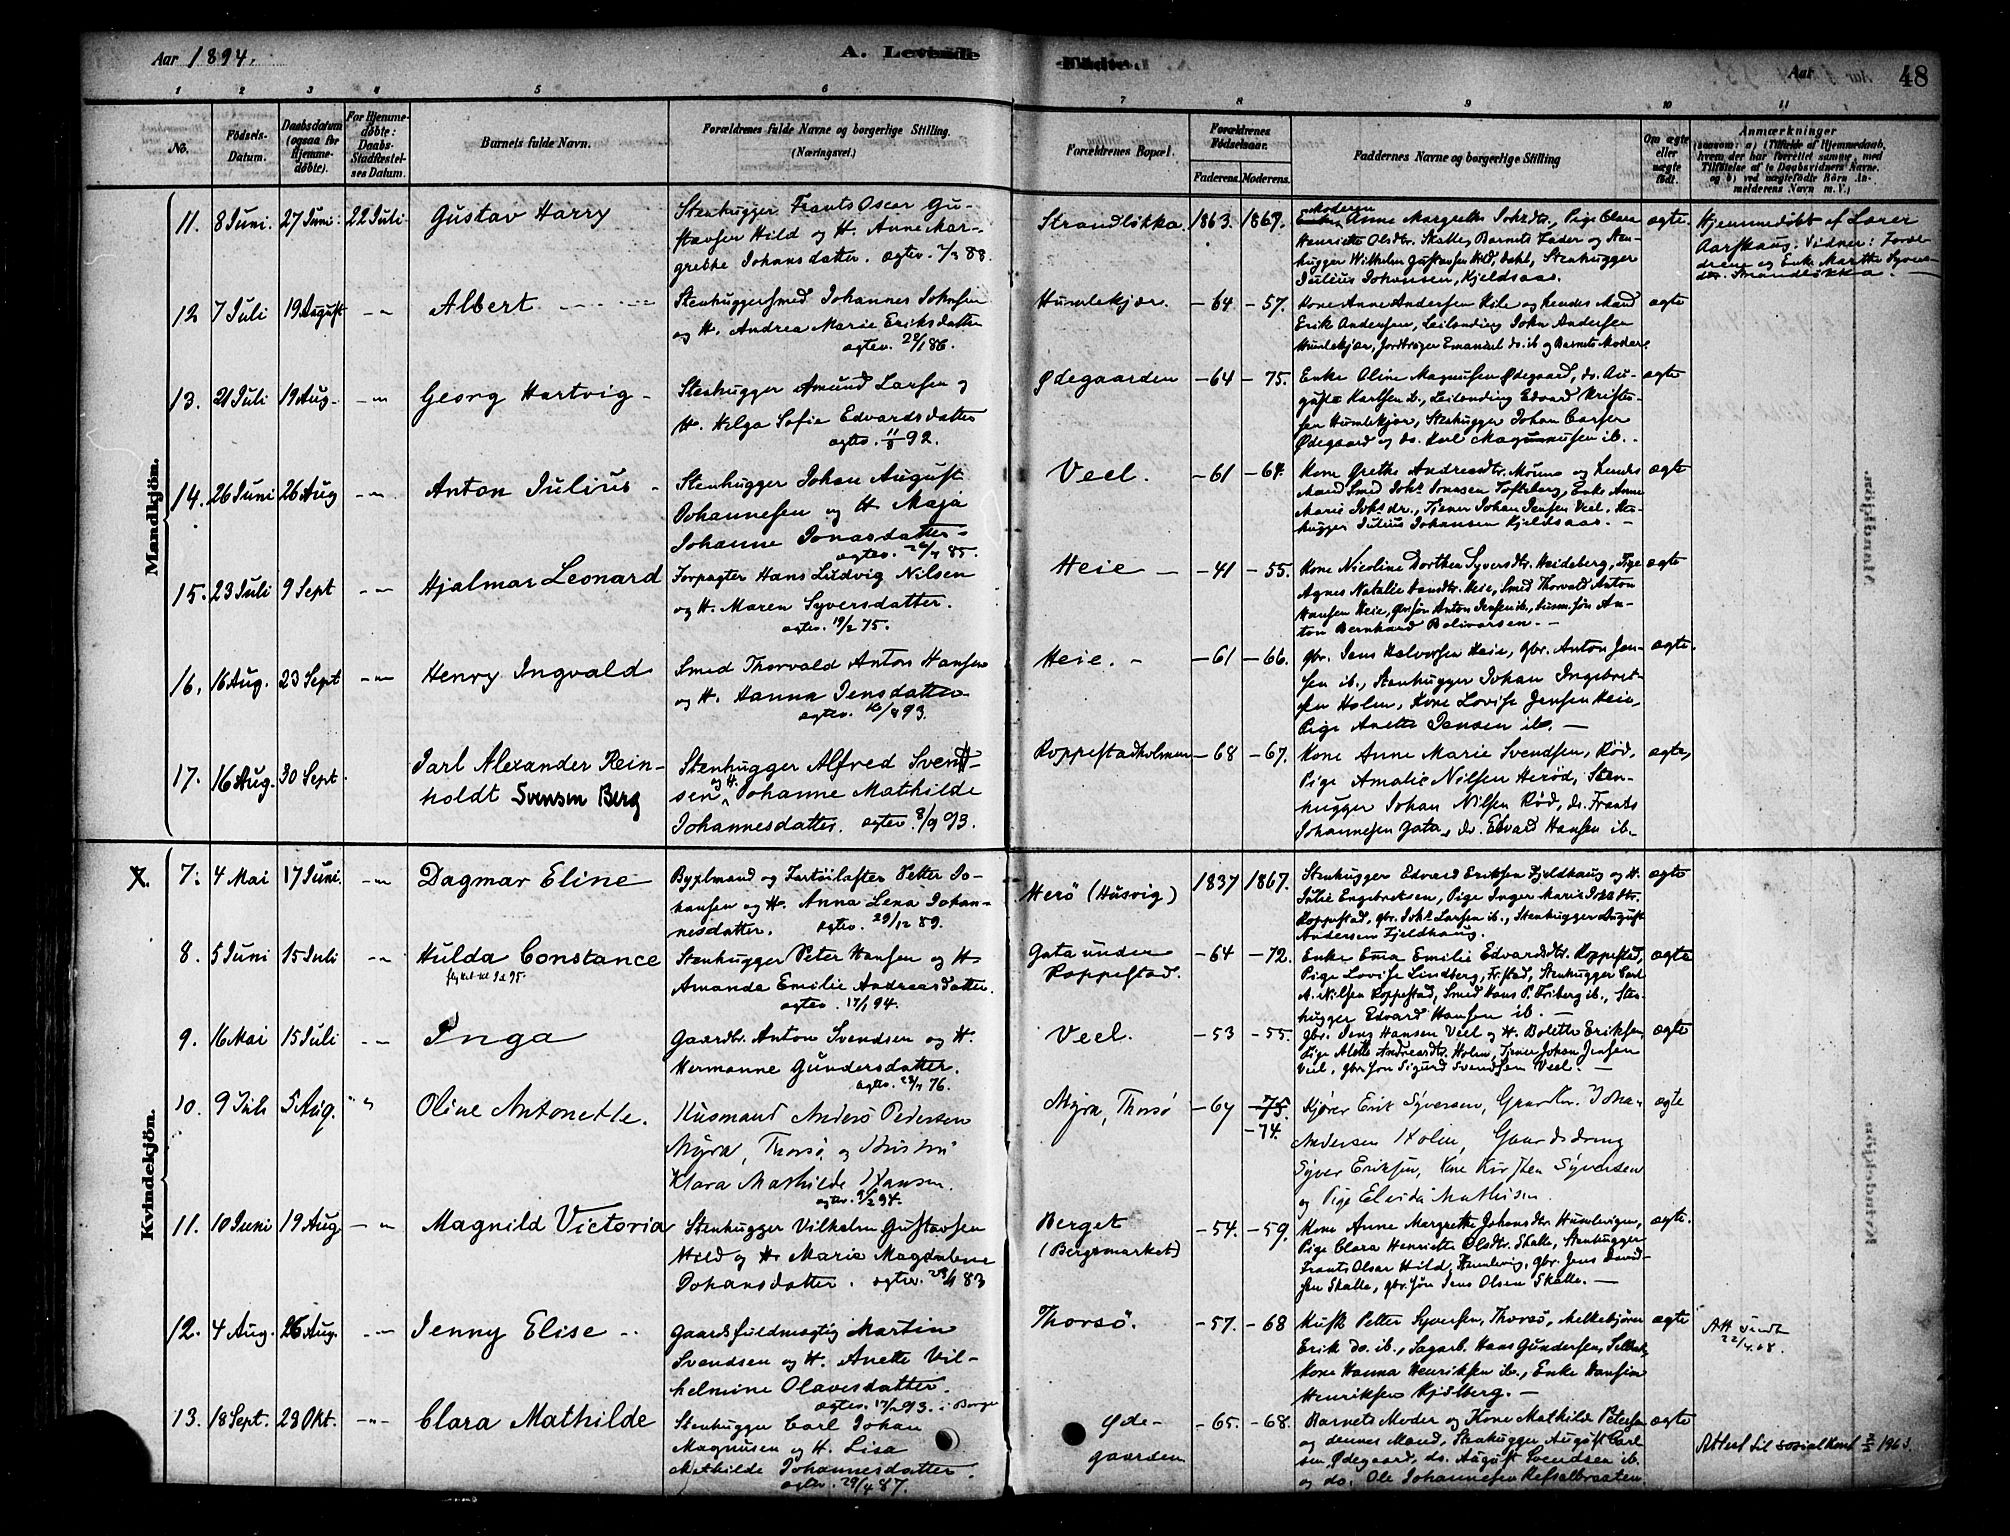 Aar 1894.
A. Levende
Fødte.
Aar
48
1 2 3 4 5 6 7 8 9 10 11
No.
Fødsels-
Datum.
Daabsdatum
(ogsaa for
Hjemme-
døbte).
For Hjemme-
døbte:
Daabs-
Stadfæstel-
ses Datum.
Barnets fulde Navn.
Forældrenes fulde Navne og borgerlige Stilling.
(Næringsvei.)
Forældrenes Bopæl.
Forældrenes
Fødselsaar.
Faderens. Moderens.
Faddernes Navne og borgerlige Stilling
Om ægte
eller
uægte
født.
Anmærkninger
(saasom: a) i Tilfælde af Hjemmedaab,
hvem der har forrettet samme, med
Tilføielse af to Daabsvidners Navne,
og b) ved uægtefødte Børn An-
melderens Navn m. V.)
Mandkjön.
11. 8 Juni. 27 Juni. 22 Juli Gustav Harry
Stenhugger Frants Oscar Gu-
stavsen Hild og H. Anne Mar-
grethe Johansdatter. ægtev. 88.
Strandløkka. 1863. 1869.
Moderen
Anne Margrethe Johsdtr., Pige Clara
Henriette Olsdtr. Skalle, Barnets Fader og Sten-
hugger Wilhelm Gustavsen Hild, Stenhugger
Julius Johansen, Kjeldsaas.
ægte.
Hjemmedøbt af Lærer
Aarskaug. Vidner: Foræl-
drene og Enke Marthe Syvers-
dtr. Strandløkka.
12 7 Juli 19 August -"- Albert
Stenhuggersmed Johannes Johnsen
og H. Andrea Marie Eriksdatter
ægtev. 86.
Humlekjær. -64 -57.
Kone Anne Andersen Hile og hendes Mand
Erik Andersen, Leilending John Andersen
Humlekjær, Jordbruger Emanuel do. ib og Barnets Moder.
ægte
13. 21 Juli 19 Aug. -"- Georg Hartvig
Stenhugger Amund Larsen og
H. Helga Sofie Edvardsdatter
ægtev. 92.
Ødegaarden -64 -75.
Enke Oline Magnussen Ødegaard, do. Au-
gusta Karlsen ib., Leilending Edvard Kristen-
sen Humlekjær, Stenhugger Johan Carlsen
Ødegaard og do. Karl Magnussen ib.
ægte
14. 26 Juni 26 Aug -"- Anton Julius
Stenhugger Johan August
Johannesen og H. Maja
Johanne Jonasdatter
ægtev. 85.
Veel. -61 -64.
Kone Grethe Andreasdtr. Moum og hendes
Mand Smed Johs Jonassen Torsberg, Enke Anne
Marie Johs dr., Tjener Johan Jensen Veel, Sten-
hugger Julius Johansen Kjeldsaas.
ægte
15. 23 Juli 9 Sept -"- Hjalmar Leonard
Forpagter Hans Ludvig Nilsen
og H. Maren Syversdatter.
ægtev. 19/2 75.
Heie -41 -55.
Kone Nicoline Dorthea Syversdtr. Heideberg, Pige
Agnes Natalie Hansdtr. Heie, Smed Thorvald Anton
Hansen Heie, gbr. søn Anton Jensen ib., An-
ton Bernhard Bolivarsen.
ægte
16. 16 Aug. 23 Sept -"- Henry Ingvald
Smed Thorvald Anton Hansen
og H. Hanna Jensdatter
ægtev. 93.
Heie. -61 -66.
Gbr. Jens Halvorsen Heie, Gbr. Anton Jen-
sen ib., Stenhugger Johan Ingebret-
sen Holm, Kone Lovise Jensen Heie,
Pige Anette Jensen ib.
ægte.
17. 16 Aug. 30 Sept Jarl Alexander Rein-
holdt Svensen Berg
Stenhugger Alfred Svend-
sen og H. Johanne Mathilde
Johannesdatter. ægtev. 8/9 93.
Roppestadholmen -68 -67.
Kone Anne Marie Svendsen, Rød,
Pige Amalie Nilsen Herød, Sten-
hugger Johan Nilsen Rød, do. Frants
Johannesen Gata, do. Edvard Hansen ib.
ægte,
Kvindekjön.
7. 4 Mai 17 Juni. -"- Dagmar Eline
Bygselmand og Fartøilaster Petter Jo-
hansen og H. Anna Lena Johan-
nesdatter. ægtev. 29/12 89.
Herö (Husvig) 1837 1867.
Stenhugger Edvard Eriksen Fjeldhaug og H.
Julie Engebretsen, Pige Inger Marie Johsdtr.
Roppestad, gbr. Johs Larsen ib., Stenhugger August
Andersen Fjeldhaug.
ægte
8. 5 Juni 15 Juli -"- Hulda Constance
Stenhugger Peter Hansen og H
Amanda Emilie Andreasdatter.
ægtev. 17/1 94.
Gata under
Roppestad. -64 -72.
Enke Ema Emilie Edvardsdtr. Roppestad,
Pige Lovise Lindberg, Fr.stad, Stenhugger Carl
A. Nilsen Roppestad, Smed Hans P. Friberg ib., Sten-
hugger Edvard Hansen ib.
ægte
9. 16 Mai 15 Juli -"- Inga
Gaardbr. Anton Svendsen og H.
Hermanne Gundersdatter.
ægtev. 76.
Veel. -53 -55.
Gbr. Jens Hansen Veel og H. Bolette Eriksen,
Pige Alette Andreasdtr. Holm, Tjener Johan Jensen
Veel, gbr. søn Sigurd Svendsen Veel.
ægte
10. 9 Juli 5 Aug. " " Oline Antonette.
Husmand Anders Pedersen
Myra, Thorsø, og Hustru
Klara Mathilde Hansen.
ægtev. 94.
Myra, Thorsø -67 -75.
-74.
Kjører Erik Syversen, Gaardbr. Joha
Andersen Holm, Gaardsdreng
Syver Eriksen, Kone Kirsten Syversen
og Pige Elvida Mathisen.
ægte
11. 10 Juni 19 Aug. -"- Magnild Victoria
Stenhugger Vilhelm Gustavsen
Hild og H. Marie Magdalene
Johansdatter. ægtev. 83
Berget
(Bergsmarket) -54. -59.
Kone Anne Margrethe Johansdtr. Humlevigen,
Pige Clara Henriette Olsdtr. Skalle, Stenhugger
Frants Olsar Hild, Humlevig, gbr. Jens David-
sen Skalle, gbr. søn Jens Olsen Skalle.
ægte.
12. 4 Aug. 26 Aug. -"- Jenny Elise
Gaardsfuldmægtig Martin
Svendsen og H. Anette Vil-
helmine Olavesdatter.
ægtev. 93. i Borge
Thorsø. -57. -68
Husm. Petter Syversen, Thorsø, Melkekjører
Erik do. ib., Sagarb. Hans Gundersen,
Kone Hanna Henriksen ib., Enke Hansine
Henriksen Kjølberg.
ægte
Att. sendt
22/4.08.
13. 18 Sept. 23 Okt. -"- Clara Mathilde
Stenhugger Carl Johan
Magnusen og H. Lisa
Mathilde Johannesdatter.
ægtev. 29/4 87.
Øde-
gaarden -65. -68.
Barnets Moder og Kone Mathilde Petersen
og dennes Mand, Stenhugger August Carl-
sen Ødegaard, do. August Svendsen ib
og do. Ole Johannesen Refsalbraaten.
ægte
Attest til sosialkont. 1963.